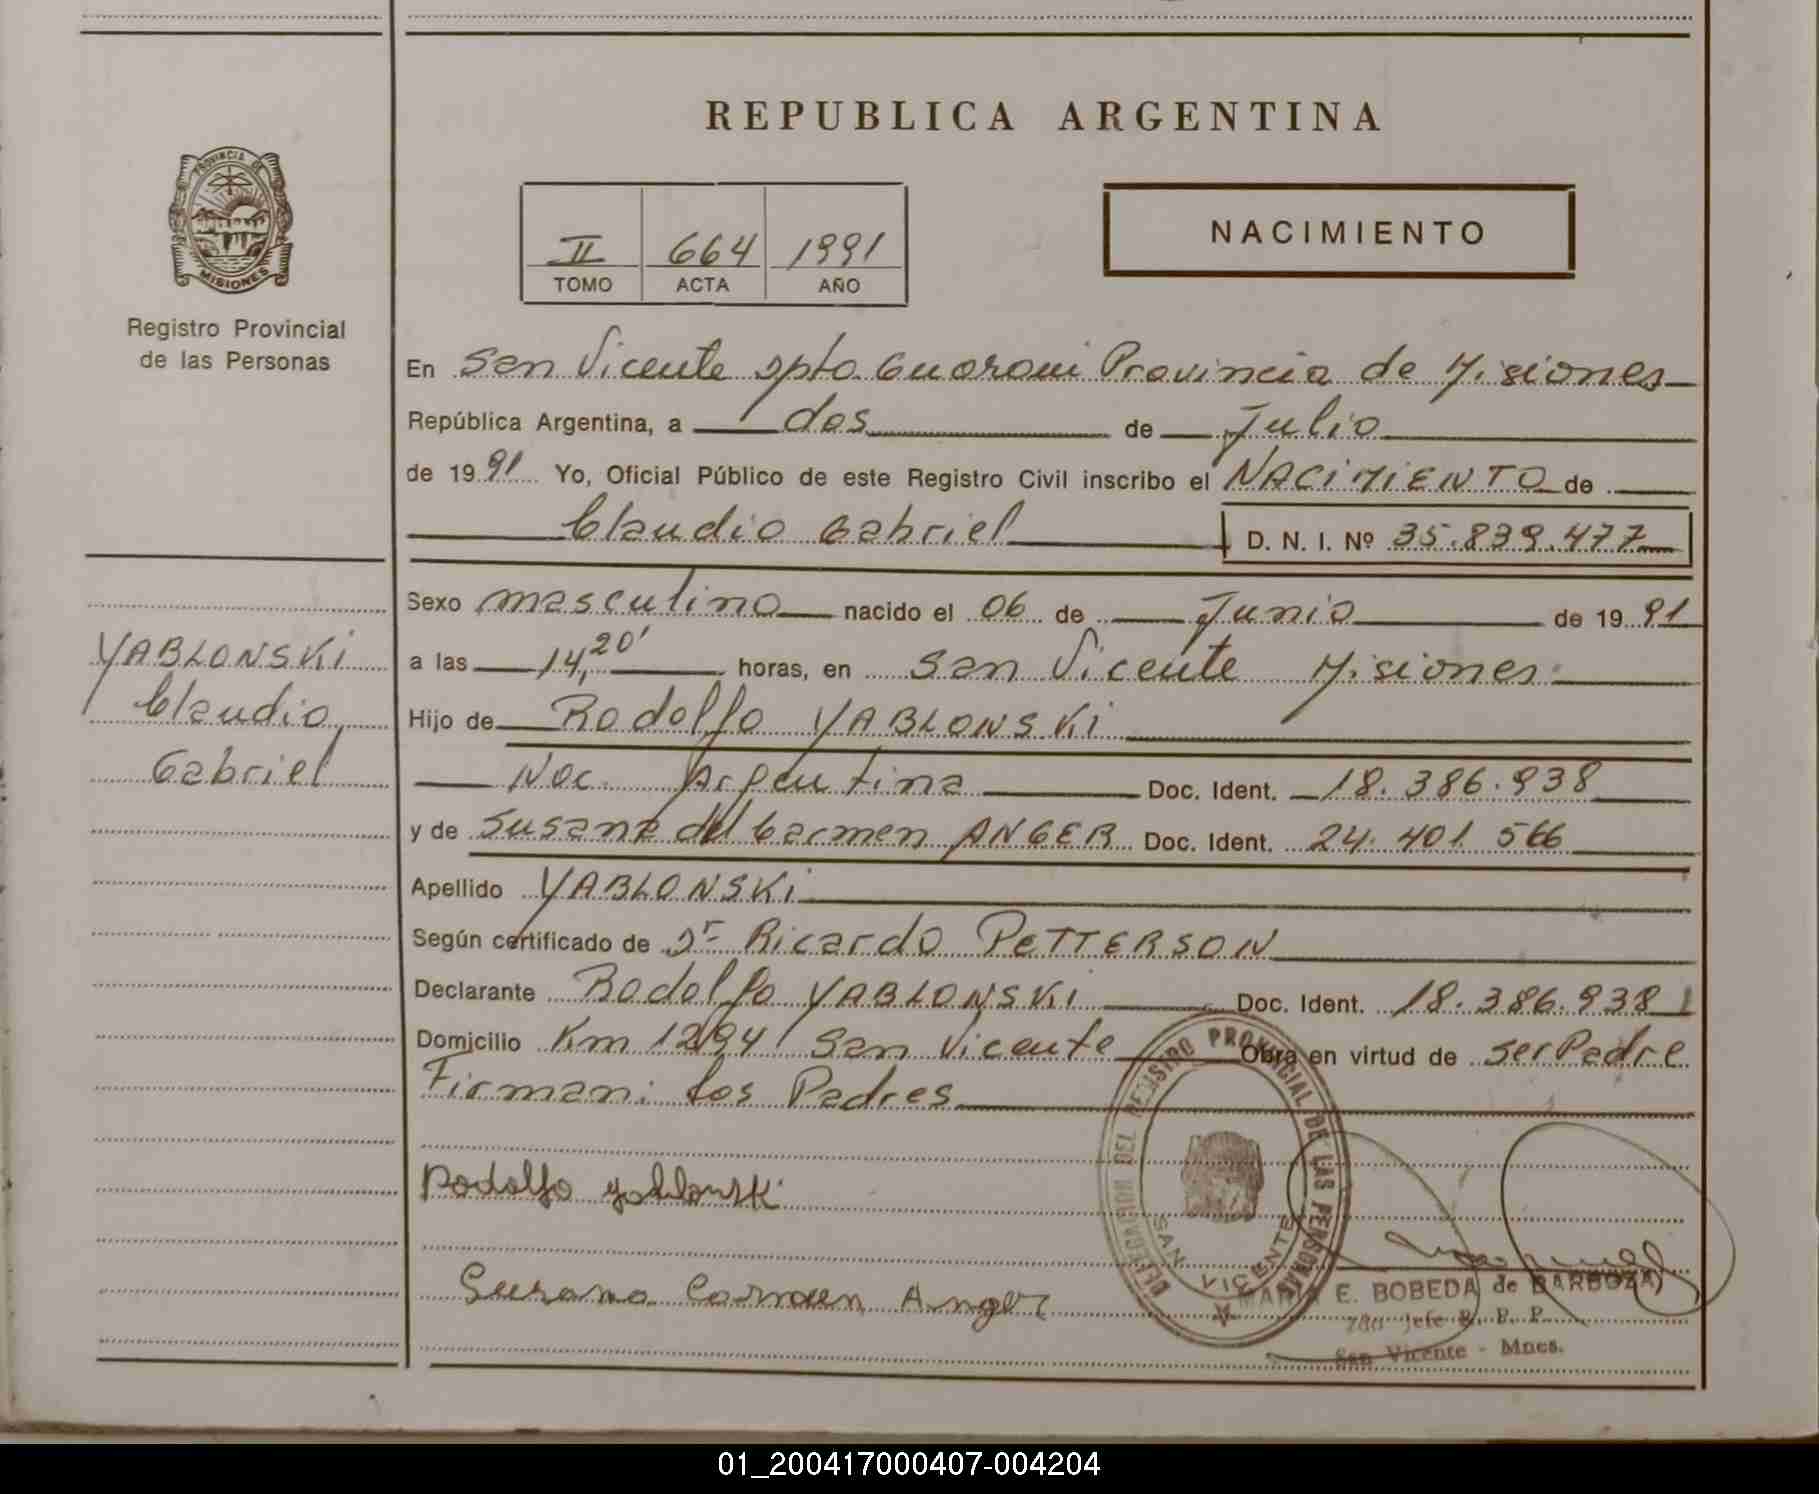 REPUBLICA ARGENTINA
PROVINCIA DE MISIONES
Registro Provincial
de las Personas
II 664 1991
TOMO ACTA AÑO
NACIMIENTO
En San Vicente Dpto. Guarani Provincia de Misiones
República Argentina, a dos de Julio
de 1991 Yo, Oficial Público de este Registro Civil inscribo el NACIMIENTO de
Claudio Gabriel D. N. I. Nº 35.839.477
Sexo masculino nacido el 06 de Junio de 1991
a las 14,20' horas, en San Vicente Misiones
Hijo de Rodolfo YABLONSKi
Nac. Argentina Doc. Ident. 18.386.938
y de Susana del Carmen ANGER Doc. Ident. 24.401.566
Apellido YABLONSKi
Según certificado de Dr Ricardo PETTERSON
Declarante Rodolfo YABLONSKi Doc. Ident. 18.386.938
Domicilio Km 1294 San Vicente Obra en virtud de ser Padre
Firman: los Padres
YABLONSKi
Claudio
Gabriel
Rodolfo yablonski
Susana Carmen Anger
DELEGACION DEL REGISTRO PROVINCIAL DE LAS PERSONAS
SAN VICENTE
MARIA E. BOBEDA de BARBOZA
Jefe R. P. P.
San Vicente - Mnes.
01_200417000407-004204